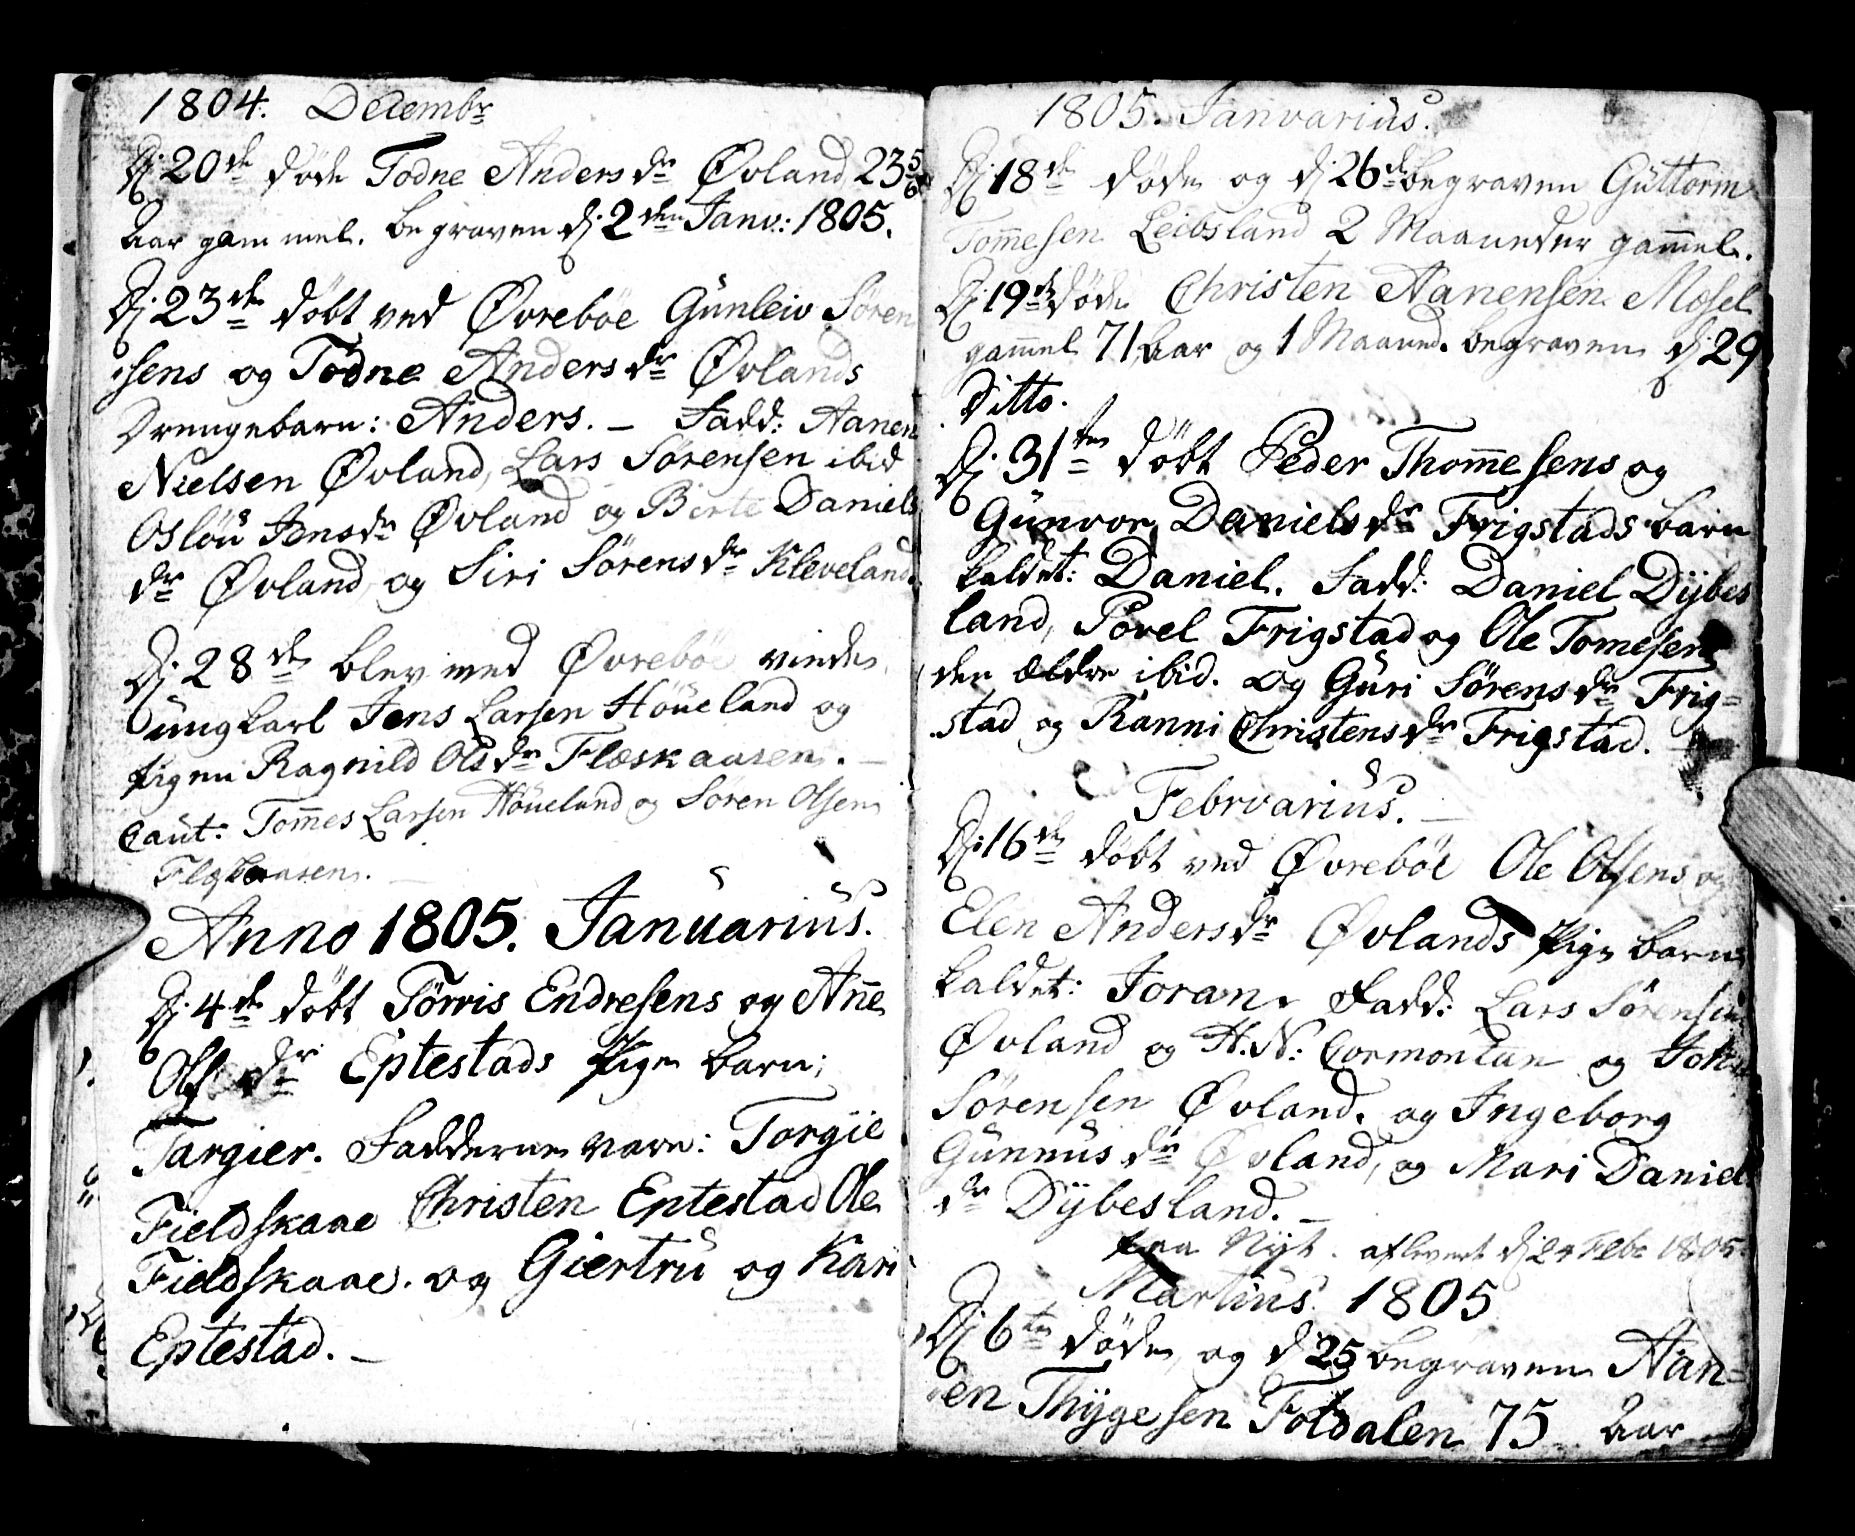 1804. Decembr
Dj 20de døde Todne Andersdr Øvland, 23 5/6
Aar gammel. begraven dj 2den Janv: 1805.
Dj 23de døbt ved Øvrebøe Gunleiv Søren
sens og Todne Andersdr Øvlands
Drengebarn: Anders. — Fadd: Aanen
Nielsen Øvland, Lars Sørensen ibid
Osløu Jensdr Øvland og Birte Daniels
dr Øvland, og Siri Sørensdr Kleveland.
Dj 28de blev ved Øvrebøe viede
ungkarl Jens Larsen Høueland og
Pigen Ragnild Olsdr Flæskaasen. —
Caut: Tom̅es Larsen Høueland og Søren Olsen
Flæskaasen. —
Anno 1805. Januarius.
Dj 4de døbt Tørris Endresens og An̅e
Olsdr Eptestads Pige barn;
Targier. Fadderne vare: Torgie
Fieldskaae Christen Eptestad Ole
Fieldskaae. og Giertru og Kari
Eptestad. —
1805. Janvarius.
Dj 18de døde og dj 26de begraven Guttorm
Tom̅esen Leibsland 2 Maaneder gam̅el.
Dj 19de døde Christen Aanensen Mosel
gam̅el 71 Aar og 1 Maaned. begraven dj 29
Ditto.
Dj 31te døbt Peder Thom̅esens og
Gunvor Danielsdr Frigstads barn
kaldet: Daniel. Fadd: Daniel Dÿbes
land, Povel Frigstad og Ole Tomesen
den ældre ibid. og Guri Sørensdr Frig=
stad og Ranni Christensdr Frigstad. —
Febrvarius. —
Dj 16de døbt ved Øvrebøe Ole Olsens og
Elen Andersdr Øvlands Pige barn
kaldet: Joran. Fadd: Lars Sørensen
Øvland og H. N: Cormontan og John
Sørensen Øvland. og Ingeborg
Gunnusdr Øvland, og Mari Daniels
dr Dÿbesland. —
fra Nÿt. aflevert dj 24 Febr 1805
Martius 1805
Dj 6te døde, og d 25 begraven Aan=
en Thÿgesen Fotdalen 75 Aar